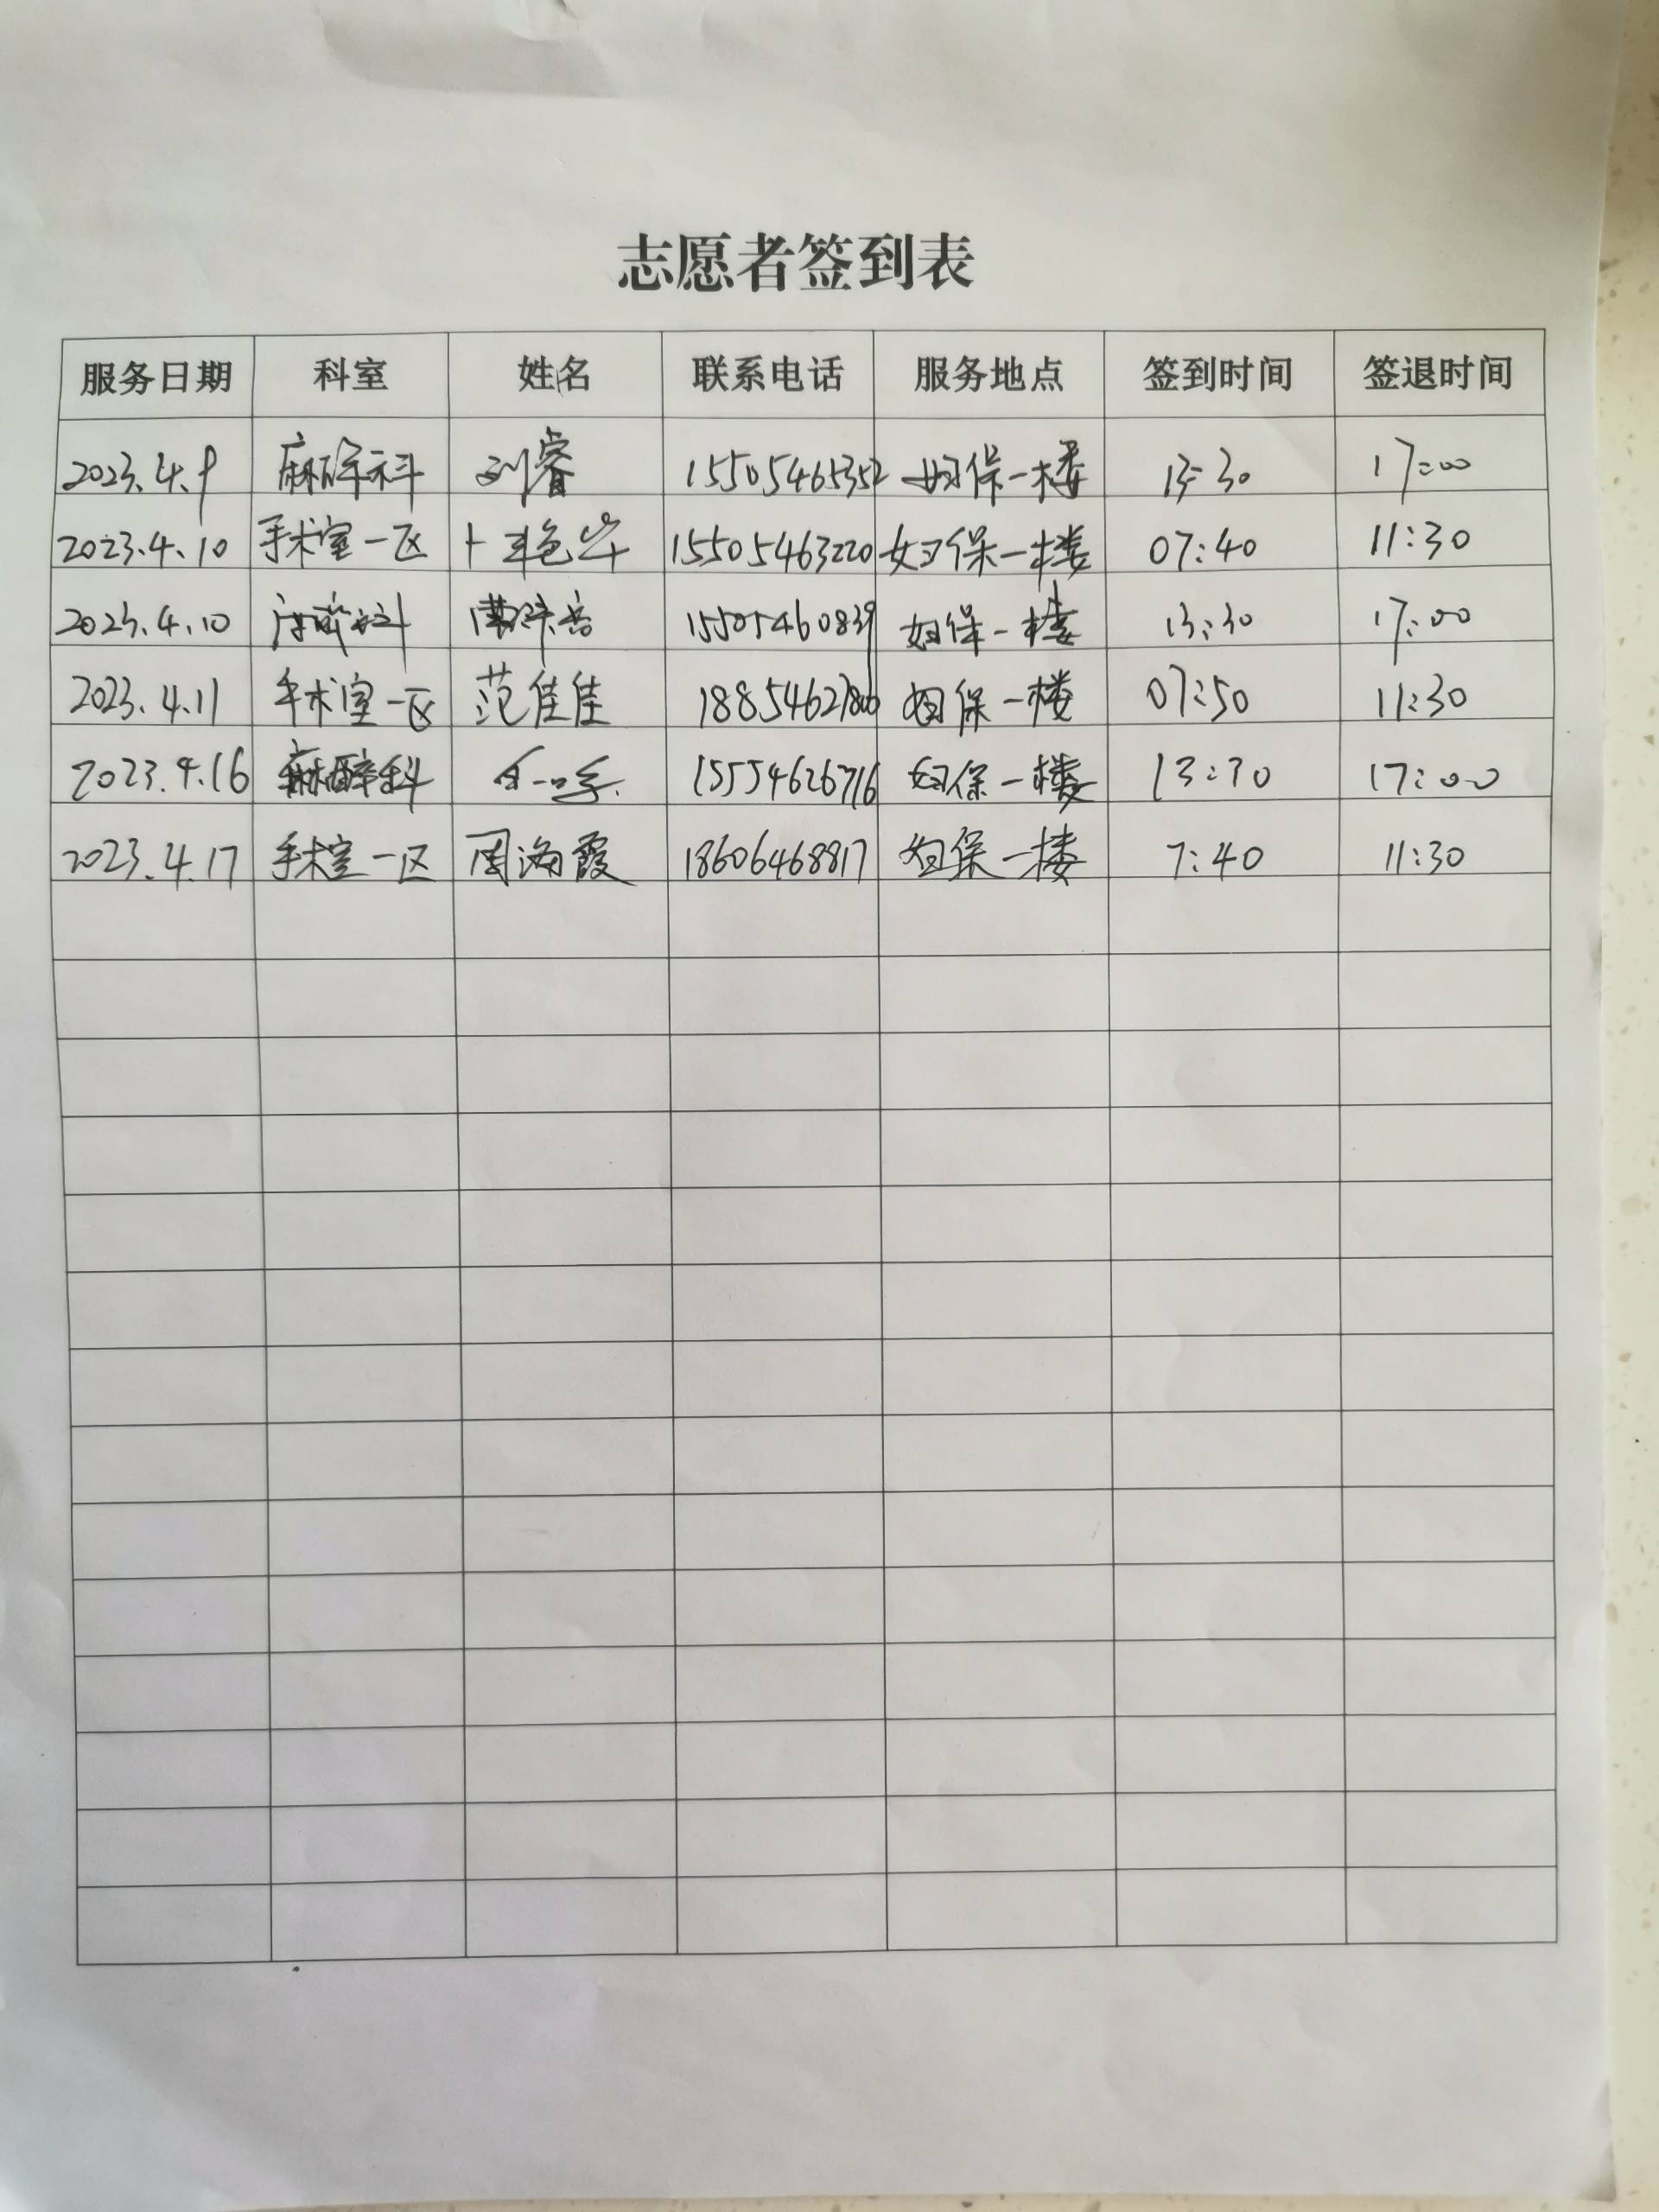 志愿者签到表
服务日期 科室 姓名 联系电话 服务地点 签到时间 签退时间
2023.4.9 麻醉科 刘睿 15505465352 妇保一楼 13:30 17:00
2023.4.10 手术室一区 15505463220 妇保一楼 07:40 11:30
2023.4.10 麻醉科 15505460839 妇保一楼 13:30 17:00
2023.4.11 手术室一区 范佳佳 妇保一楼 07:50 11:30
2023.4.16 麻醉科 15554626716 妇保一楼 13:30 17:00
2023.4.17 手术室一区 周海霞 18606468817 妇保一楼 7:40 11:30